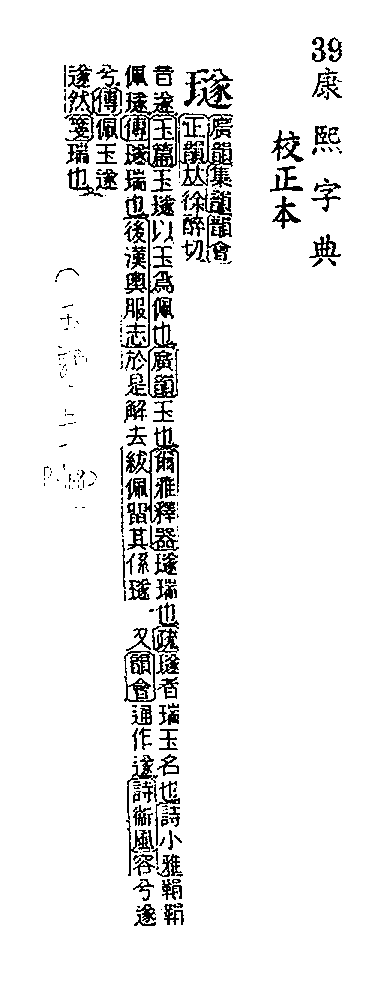 39
康熙字典
校正本
璲
廣韻集韻韻會
正韻𠀤徐醉切
音遂玉篇玉璲以玉爲佩也廣韻玉也爾雅釋器璲瑞也疏璲者瑞玉名也詩小雅鞙鞙
佩璲傳璲瑞也後漢輿服志於是解去紱佩留其係璲 又韻會通作遂詩衞風容兮遂
兮傳佩玉遂
遂然箋瑞也